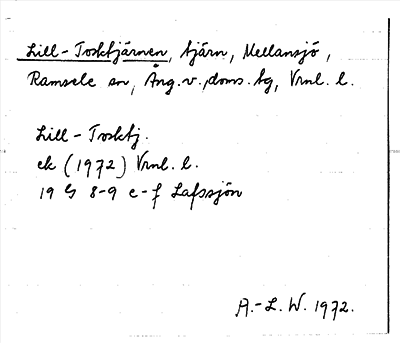 Lill-Tosktjärnen, tjärn, Mellansjö,
Ramsele sn, Ång.v. doms. tg, Vrnl. l.
Lill-Trosktj.
ek (1972) Vrnl. l.
19 G 8-9 e-f Lafssjön
A.-L. W. 1972.